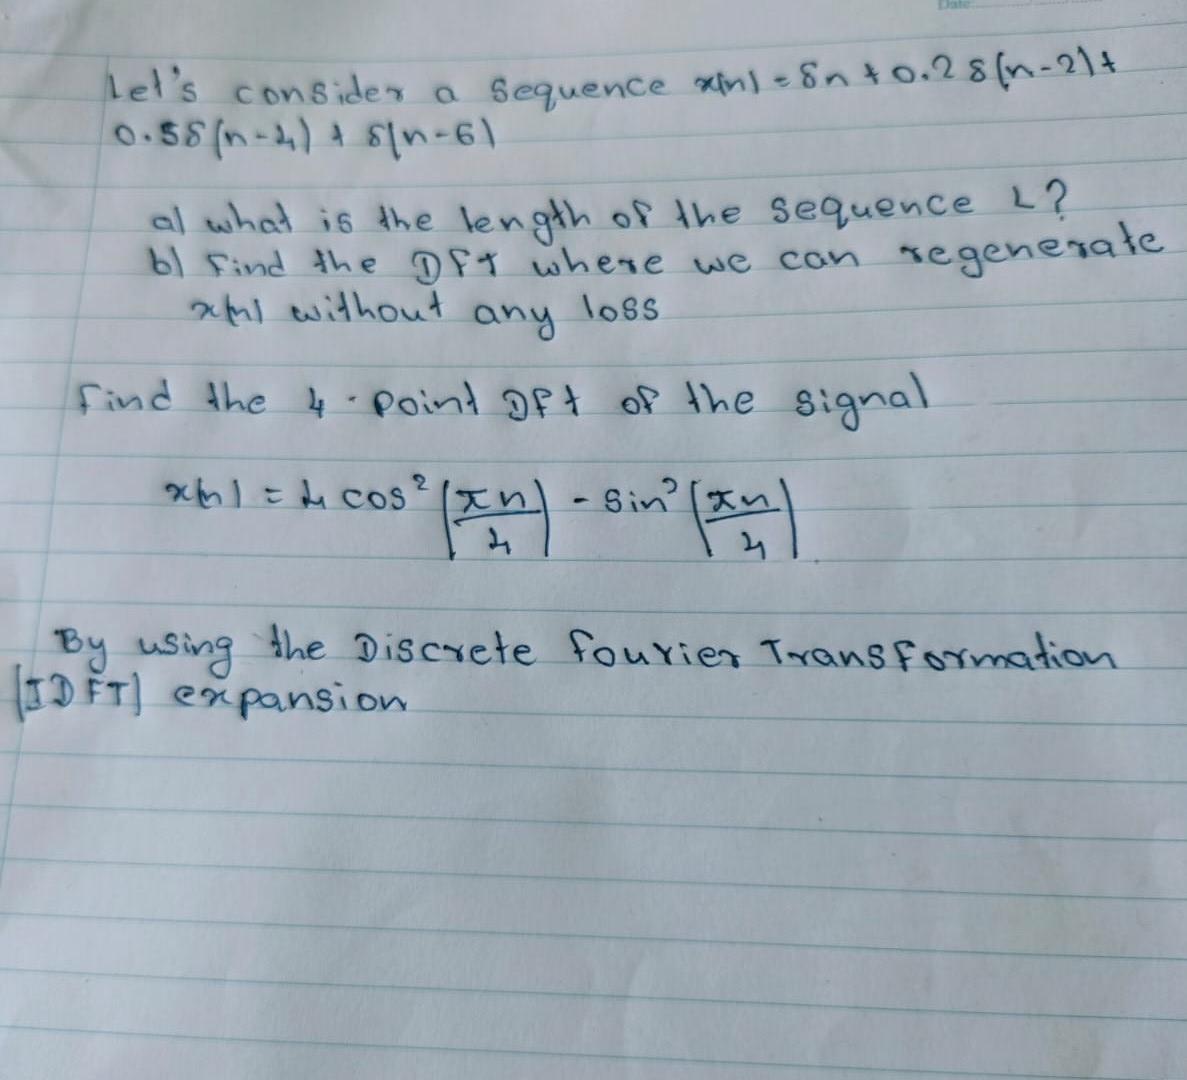 Date
Let's consider a sequence x(n) = δn + 0.2 δ(n-2) +
0.5δ(n-4) + δ(n-6)
a) what is the length of the sequence L?
b) Find the DFT where we can regenerate
x(n) without any loss
Find the 4-point DFT of the signal
x(n) = 4 cos² (πn/4) - sin² (πn/4)
By using the Discrete Fourier Transformation
(IDFT) expansion